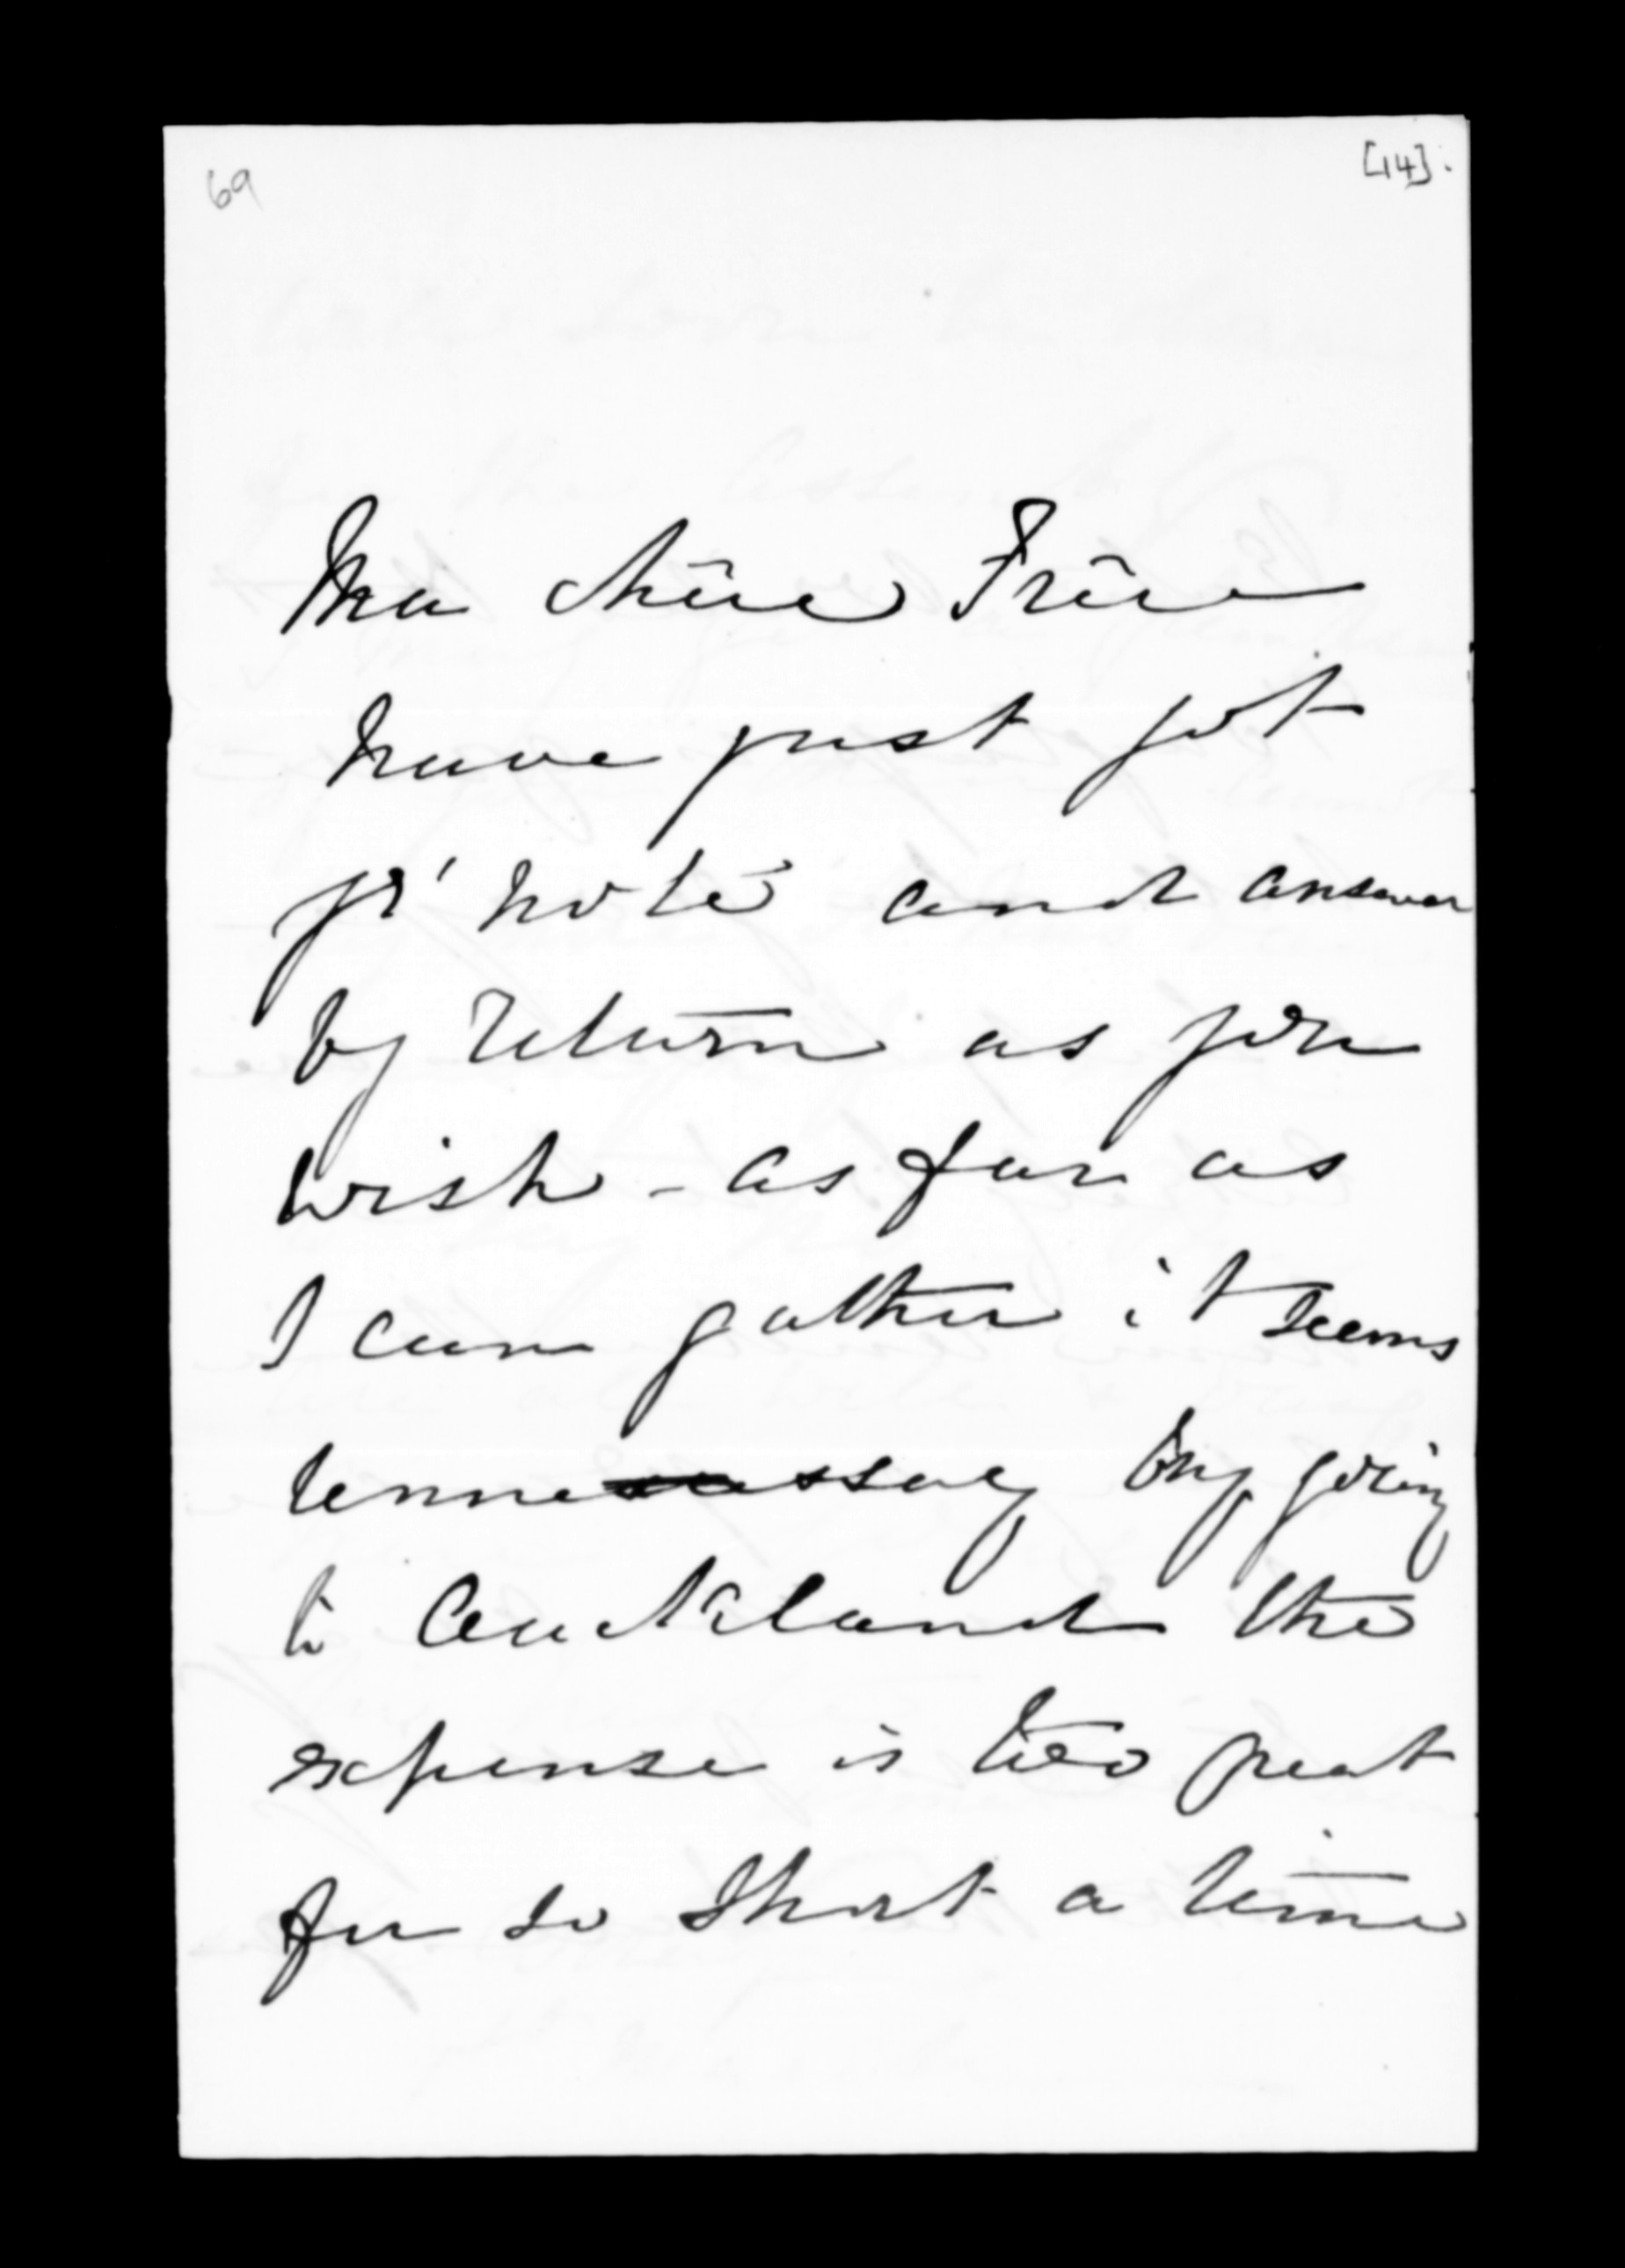 69
[14].
Ma chère Frère
have just got
yr' note and answer
by return as you
wish - as far as
I can gather it seems
unnecessary my going
to Auckland the
expense is too great
for so short a time